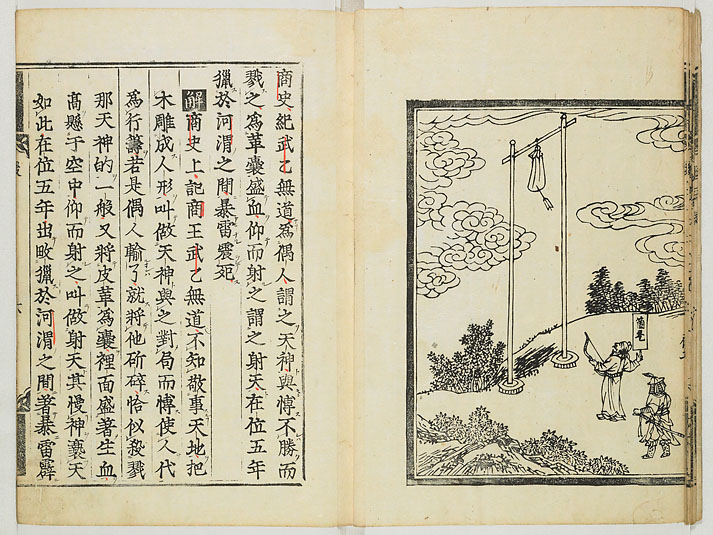 商史紀武乙無道為偶人謂之天神與愽不勝而
戮之為革囊盛血仰而射之謂之射天在位五年
獵於河渭之間暴雷震死
解商史上記商王武乙無道不知敬事天地把
木雕成人形叫做天神與之對局而愽使人代
為行籌若是偶人輸了就將他斫碎恰似殺戮
那天神的一般又將皮革為囊裡面盛著生血
高懸于空中仰而射之叫做射天其慢神褻天
如此在位五年出畋獵於河渭之間著暴雷霹